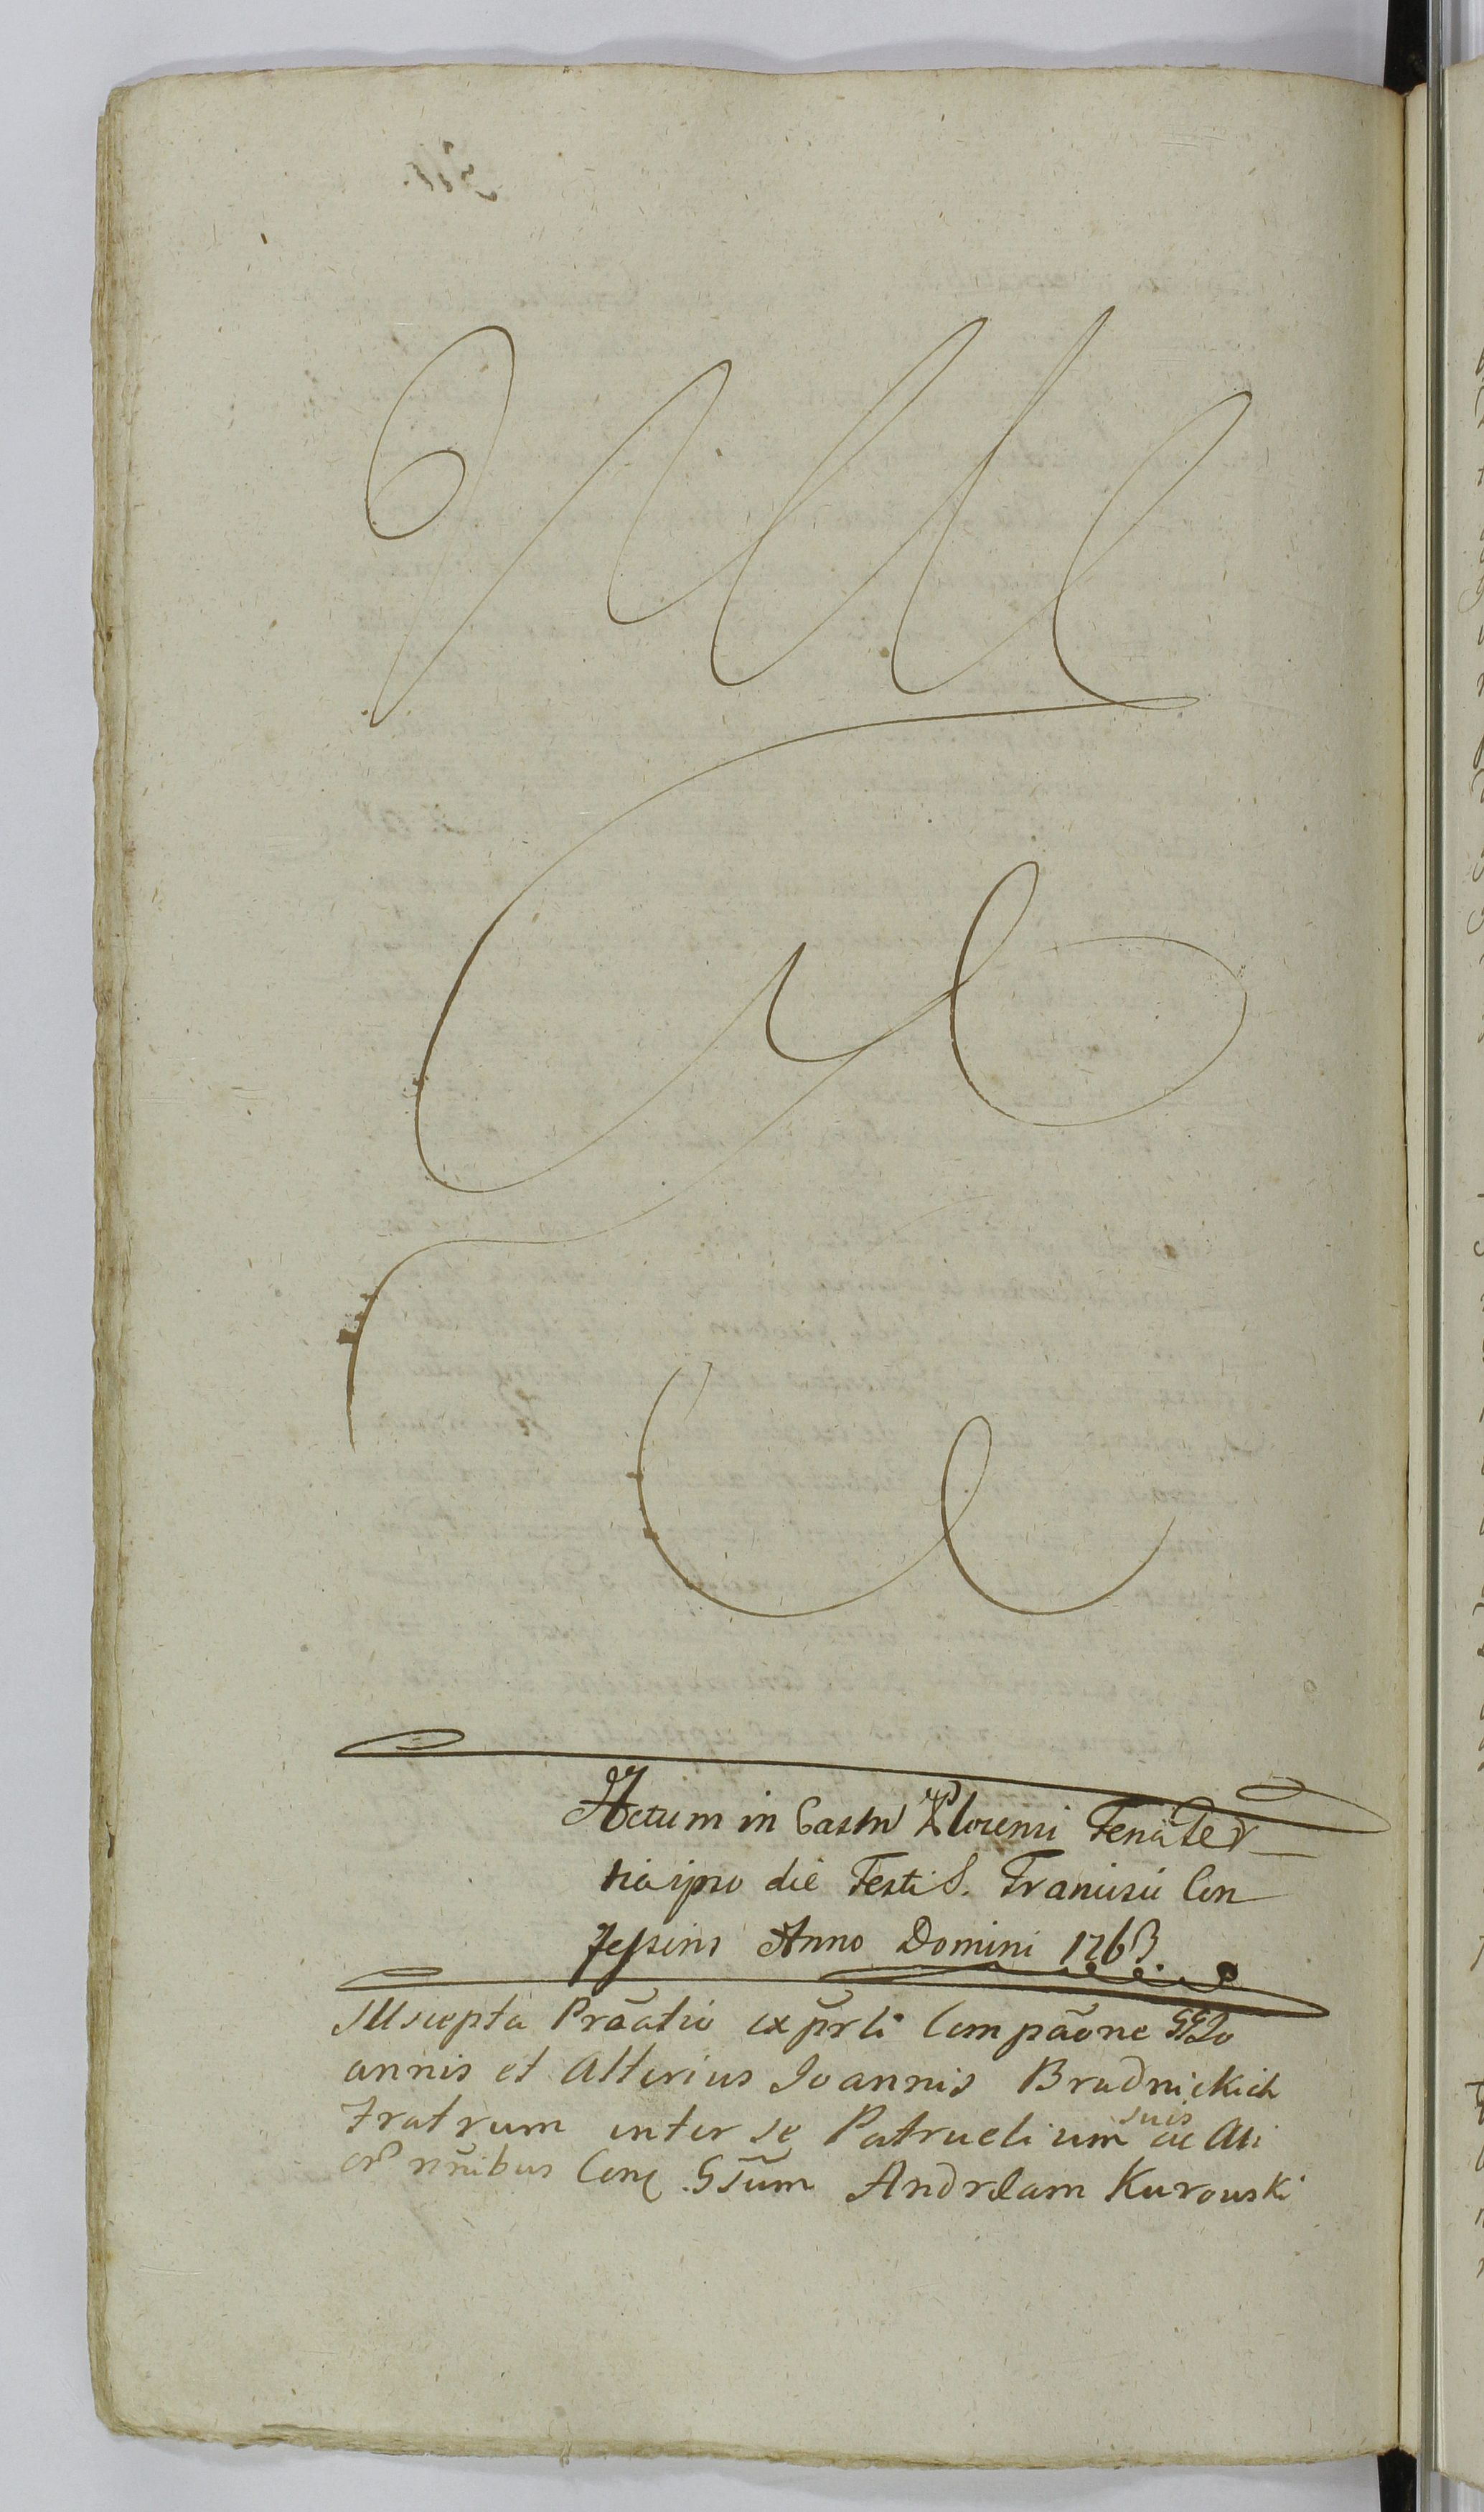 Actum in Castro Plocensi Feria Ter
tia ipso die Festi S. Francisci Con
fessoris Anno Domini 1763
Suscepta Prãatio ex pr̃li Compãone GG Jo
annis et Alterius Joannis Brudnickich
Fratrum inter se Patruelium suis ac Ali
or nr̃nibus Conq GSum Andream Kurowski